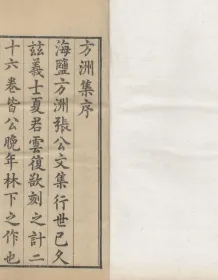 方洲集序
海鹽方洲張公文集行世已久
兹義士夏君雲復欲刻之計二
十六卷皆公晚年林下之作也